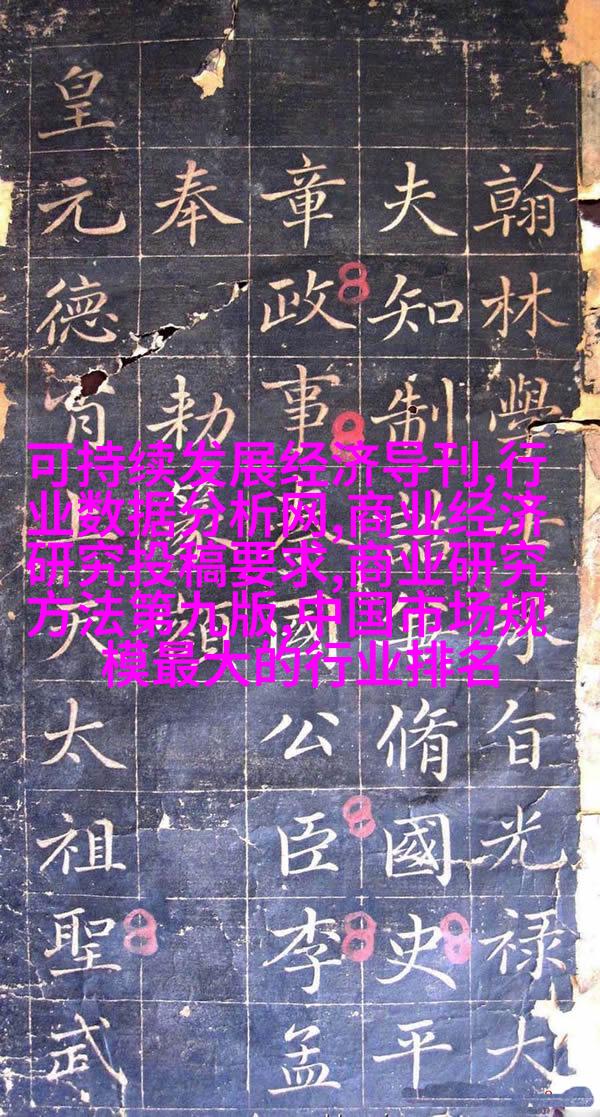 可持续发展经济导刊,行
业数据分析网,商业经济
研究投稿要求,商业研究
方法第九版,中国市场规
模最大的行业排名
翰林學士承旨光禄大
夫知制誥兼脩國史平
章政事國公臣李孟
奉勅篆題
皇元德上天太祖聖武